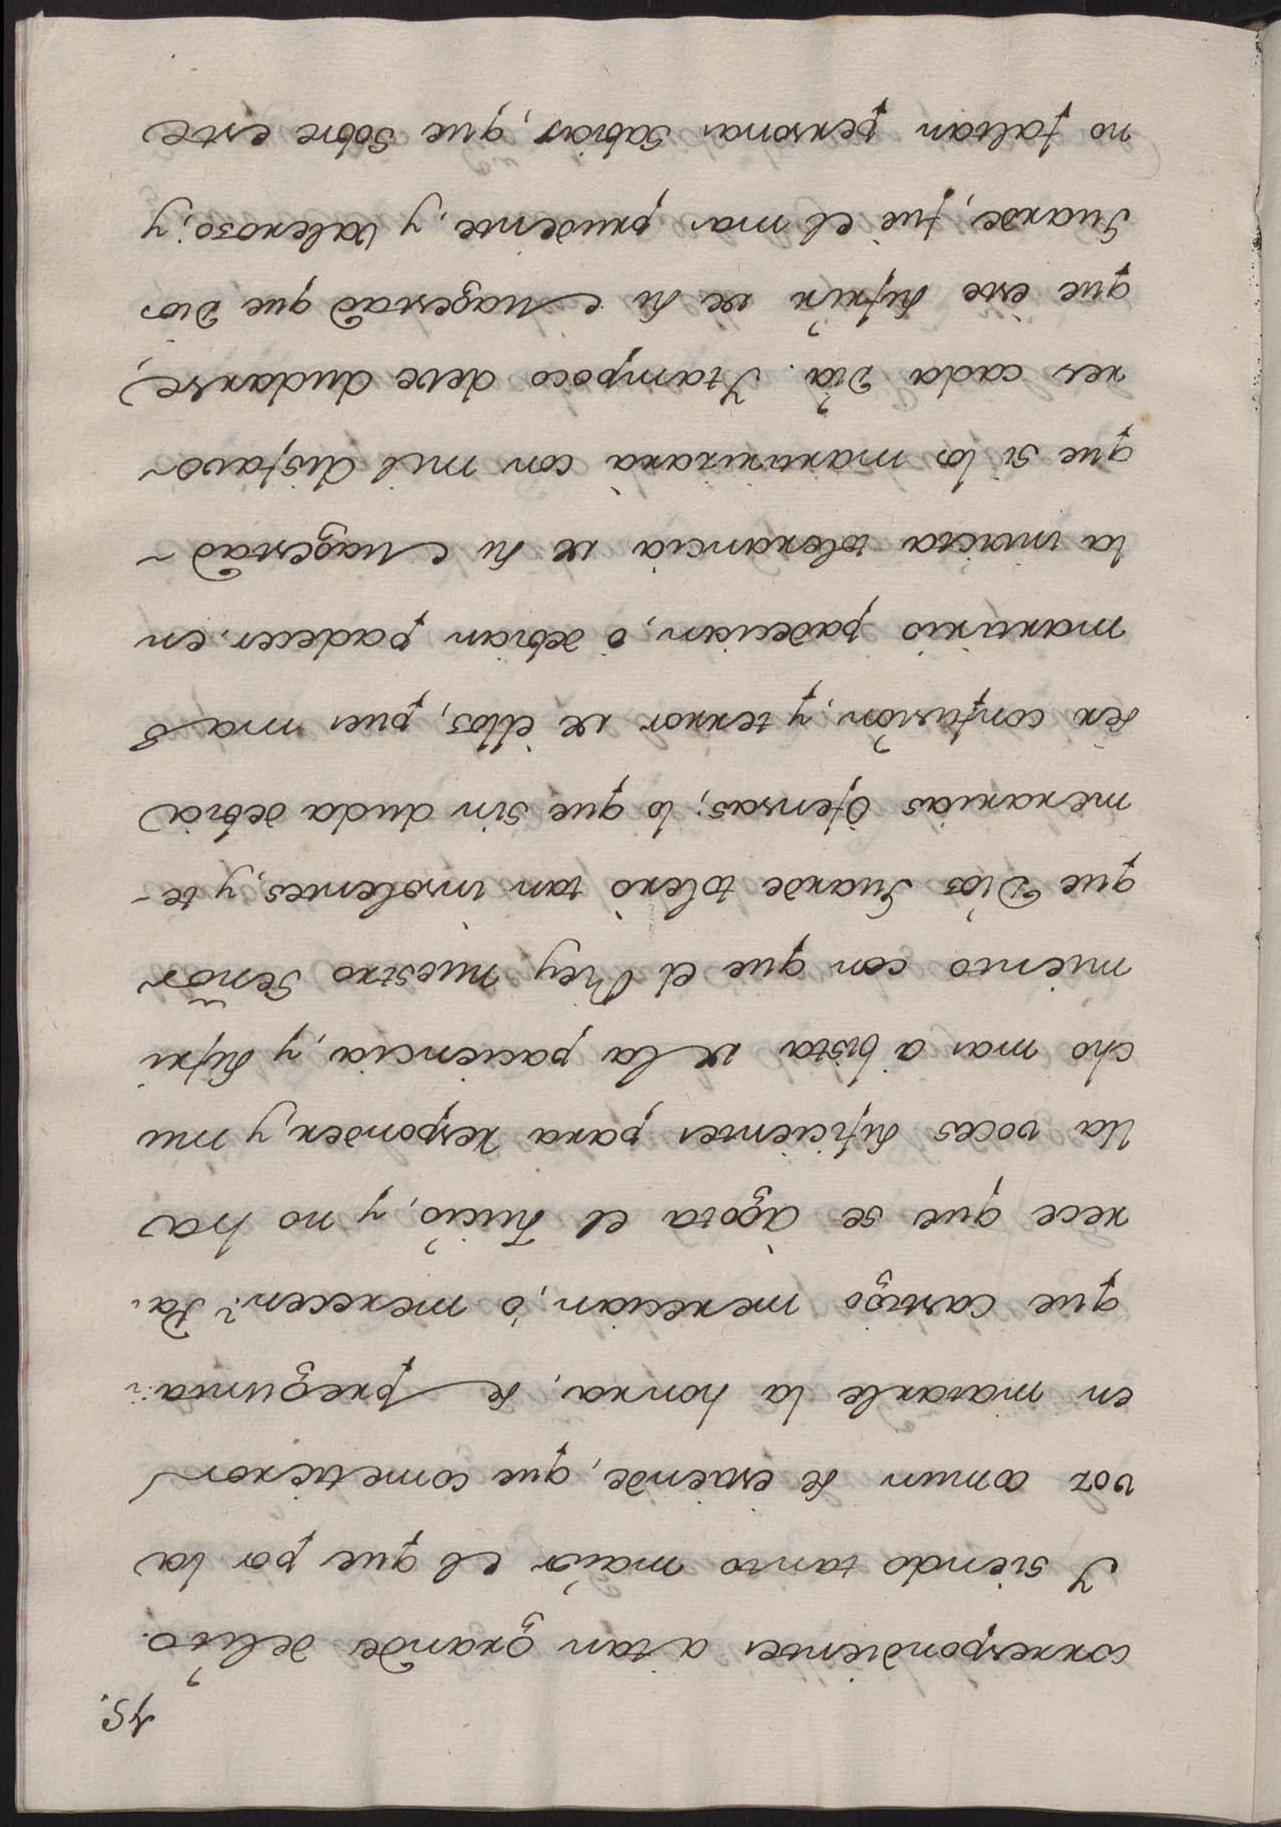 19.
correspondientes a tan grande delito.
Y siendo tanto maior el que por la
voz comun se entiende, que cometieron
en matarle la honra, se pregunta:
que castigo merecian, ò merecen? Pa-
rece que se àgota el Juicio, y no ha
lla voces suficientes para responder, y mu
cho mas a bista de la paciencia, y sufri
miento con que el Rey nuestro Señor
que Dios Guarde tolerò tan insolentes, y te-
merarias Ofensas; lo que sin duda debia
ser confusion, y terror de èllos, pues mas
martirio padecian, ò debian padecer en
la invicta tolerancia de su Magestad
que si los martirizara con mil disfavo-
res cada Dia. Y tampoco deve dudarse,
que èste sufrir de su Magestad que Dios
Guarde, fuè el mas prudente, y Valeroso; y
no faltan personas Sabias, que Sobre este